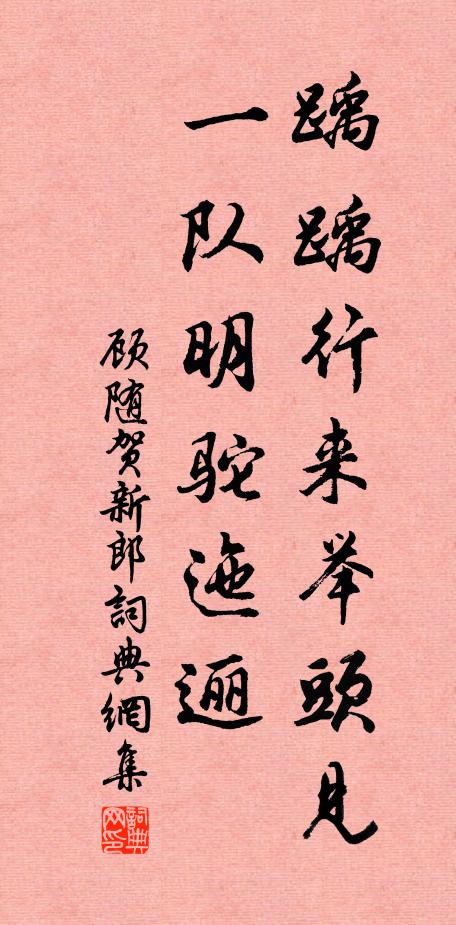 踽踽行来举頭见
一队明驼迤逦
顾随贺新郎詞典網集
詞典网印